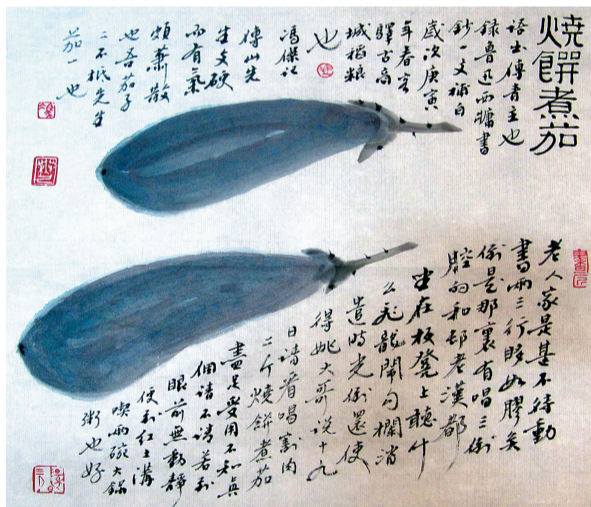 燒煮茄
語出傅青主也
録魯迅西牗書
鈔一文補白
歲次庚寅
年春客
驛古高
城稻粮
也
馮傑記
傅山先
生支硬
亦有氣
頗蕭散
也吾茄子
二不抵先生
茄一也
老人家是甚不待動
書兩三行眵如膠矣
倒是那裏有唱三倒
腔的和邨老漢都
坐在板凳上聽什
么飛龍鬧勾欄消
遣時光倒還使
得姚大哥説十九
日請看唱割肉
二斤燒餅煮茄
盡足受用不知真
個請不請若到
眼前無動静
便到紅土溝
喫兩碗大鍋
粥也好